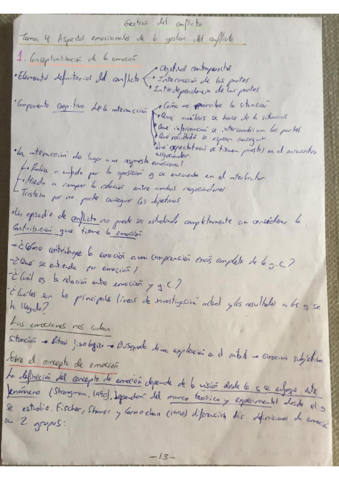 Gestión del conflicto
Tema 4 Aspectos emocionales de la gestión del conflicto
1. Conceptualización de la emoción
• Elementos definitorios del conflicto
Objetivos contrapuestos
Interacción de las partes
Interdependencia de las partes
• Componente cognitivo de la interacción
Cómo se percibe la situación
Que análisis se hace de la situación
Que información se intercambian las partes
Que resultado se espera
Que expectativas se tienen puestas en el encuentro
negociador
• La interacción da lugar a una respuesta emocional
por la oposición q se encuentra en el
Miedo a romper la relación entre ambos negociadores
Tristeza por no poder conseguir los objetivos
Un episodio de conflicto no puede ser estudiado completamente sin considerar la
contribución q tiene la emoción
- ¿Cómo contribuye la emoción a una comprensión más completa de la g.c.?
- ¿Qué se entiende por emoción?
- ¿Cuál es la relación entre emoción y g.c.?
- ¿Cuáles son las principales líneas de investigación actual y los resultados a los q se
ha llegado?
Las emociones nos
situación → → Búsqueda de una explicación al estado → emoción subjetiva
Sobre el concepto de emoción
La definición del concepto de emoción depende de la visión desde la q se enfoque este
fenómeno (Strongman, ), dependerá del marco teórico y experimental desde el q
se estudie. Fischer, Shaver y Carnochan (1990) diferencian las definiciones de emoción
en 2 grupos:
- 13 -